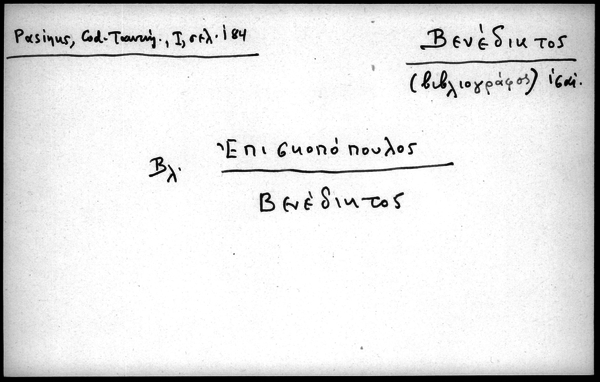 Pasinus, Cod. Taurin., I, σελ. 184
Βενέδικτος
(βιβλιογράφος)
Βλ. Ἐπισκοπόπουλος
Βενέδικτος